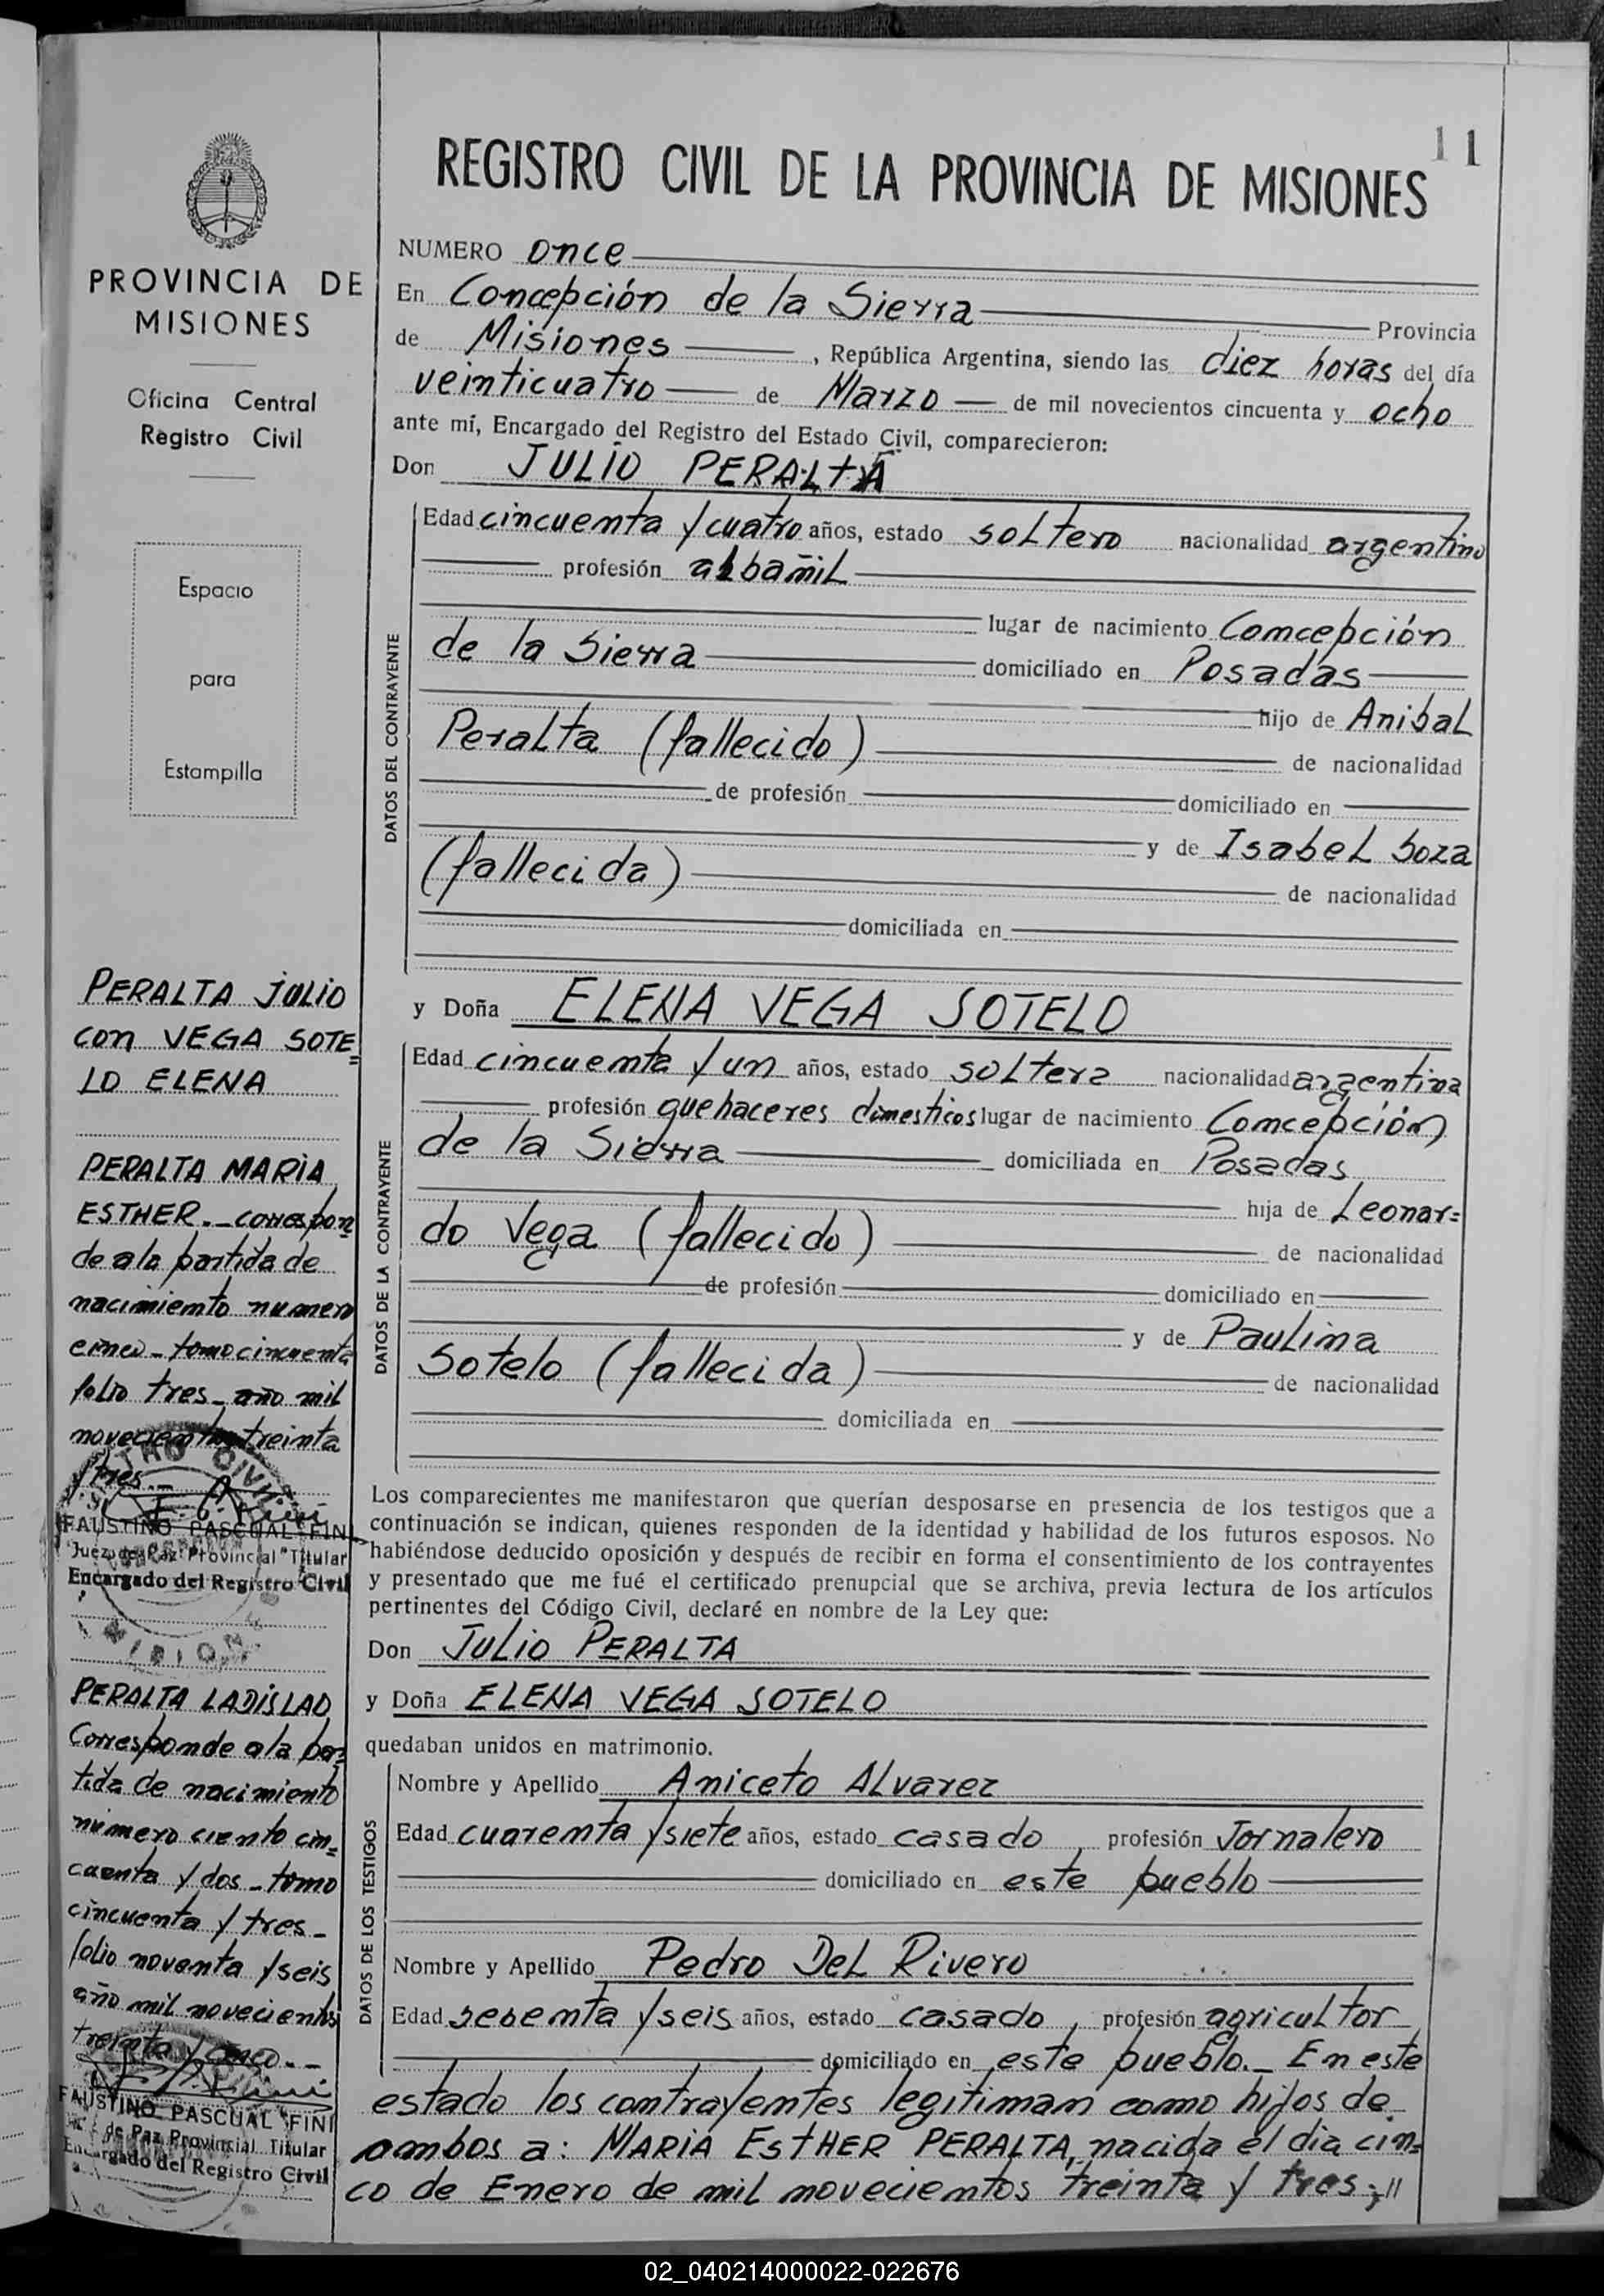 11
REGISTRO CIVIL DE LA PROVINCIA DE MISIONES
PROVINCIA DE
MISIONES
Oficina Central
Registro Civil
Espacio
para
Estampilla
PERALTA JULIO
con VEGA SOTE=
LO ELENA
PERALTA MARIA
ESTHER._ correspon=
de a la partida de
nacimiento numero
cinco - tomo cincuenta
folio tres - año mil
novecientos treinta
y tres._
FAUSTINO PASCUAL FINI
Juez de Paz Provincial Titular
Encargado del Registro Civil
PERALTA LADISLAO
Corresponde a la par=
tida de nacimiento
número ciento cin=
cuenta y dos - tomo
cincuenta y tres -
folio noventa y seis
año mil novecientos
treinta y cinco._
FAUSTINO PASCUAL FINI
de Paz Provincial Titular
Encargado del Registro Civil
NUMERO once
En Concepción de la Sierra Provincia
de Misiones, República Argentina, siendo las diez horas del día
veinticuatro de Marzo de mil novecientos cincuenta y ocho
ante mí, Encargado del Registro del Estado Civil, comparecieron:
Don JULIO PERALTA
DATOS DEL CONTRAYENTE
Edad cincuenta y cuatro años, estado soltero nacionalidad argentino
profesión albañil
lugar de nacimiento Concepción
de la Sierra domiciliado en Posadas
hijo de Anibal
Peralta (fallecido) de nacionalidad
de profesión domiciliado en
y de Isabel Soza
(fallecida) de nacionalidad
domiciliada en
y Doña ELENA VEGA SOTELO
DATOS DE LA CONTRAYENTE
Edad cincuenta y un años, estado soltera nacionalidad argentina
profesión quehaceres domesticos lugar de nacimiento Concepción
de la Sierra domiciliada en Posadas
hija de Leonar=
do Vega (fallecido) de nacionalidad
de profesión domiciliado en
y de Paulina
Sotelo (fallecida) de nacionalidad
domiciliada en
Los comparecientes me manifestaron que querían desposarse en presencia de los testigos que a
continuación se indican, quienes responden de la identidad y habilidad de los futuros esposos. No
habiéndose deducido oposición y después de recibir en forma el consentimiento de los contrayentes
y presentado que me fué el certificado prenupcial que se archiva, previa lectura de los artículos
pertinentes del Código Civil, declaré en nombre de la Ley que:
Don JULIO PERALTA
y Doña ELENA VEGA SOTELO
quedaban unidos en matrimonio.
DATOS DE LOS TESTIGOS
Nombre y Apellido Aniceto Alvarez
Edad cuarenta y siete años, estado casado, profesión Jornalero
domiciliado en este pueblo
Nombre y Apellido Pedro Del Rivero
Edad sesenta y seis años, estado casado, profesión agricultor
domiciliado en este pueblo._ En este
estado los contrayentes legitiman como hijos de
ambos a: MARIA ESTHER PERALTA, nacida el dia cin=
co de Enero de mil novecientos treinta y tres;//
02_040214000022-022676